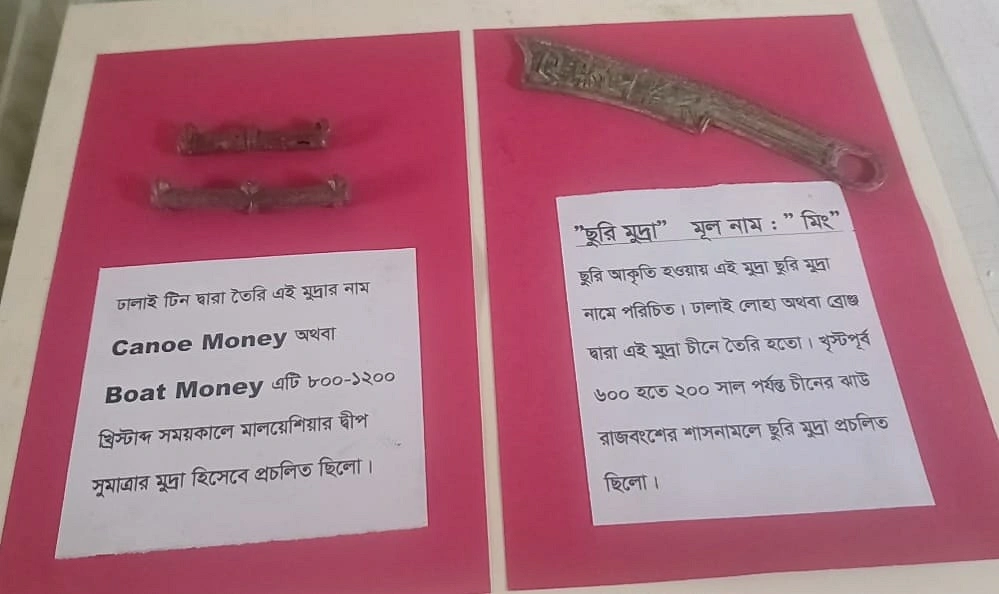 ঢালাই টিন দ্বারা তৈরি এই মুদ্রার নাম
Canoe Money অথবা
Boat Money এটি ৮০০-১২০০
খ্রিস্টাব্দ সময়কালে মালয়েশিয়ার দ্বীপ
সুমাত্রার মুদ্রা হিসেবে প্রচলিত ছিলো।
”ছুরি মুদ্রা” মূল নাম : ” মিং”
ছুরি আকৃতি হওয়ায় এই মুদ্রা ছুরি মুদ্রা
নামে পরিচিত। ঢালাই লোহা অথবা ব্রোঞ্জ
দ্বারা এই মুদ্রা চীনে তৈরি হতো। খৃস্টপূর্ব
৬০০ হতে ২০০ সাল পর্যন্ত চীনের ঝাউ
রাজবংশের শাসনামলে ছুরি মুদ্রা প্রচলিত
ছিলো।